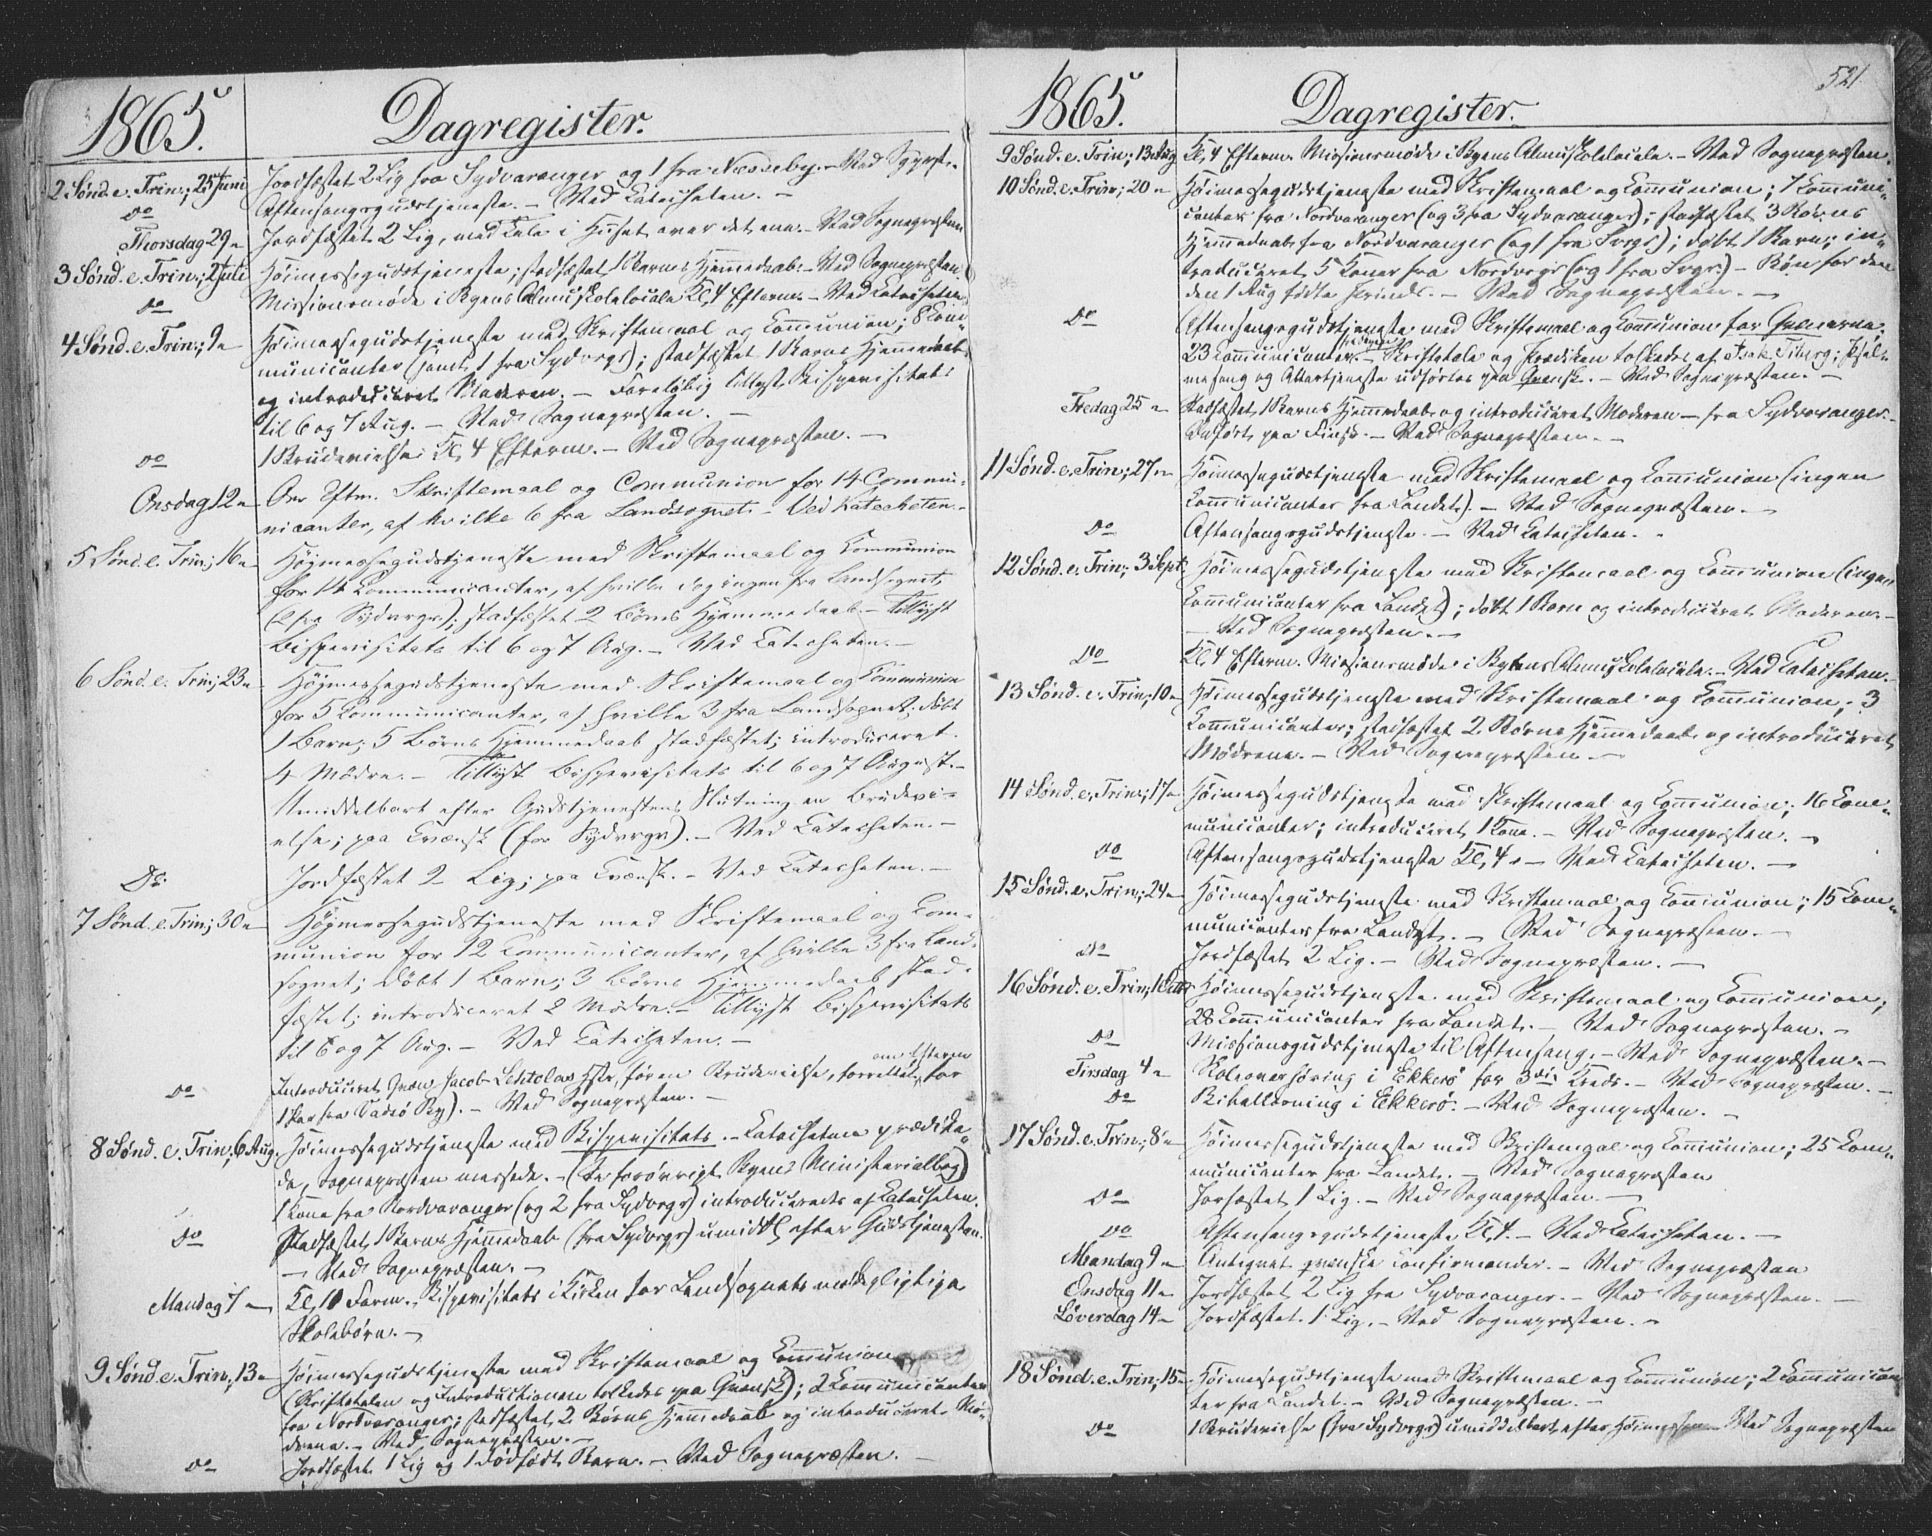 1865.
Dagregister.
2 Sønd. e. Trin; 25 Juni Jordfæstet 2 Lig fra Sydvaranger og 1 fra Næsseby. - Ved Sgprst. -
Do Aftensangsgudstjeneste. - Ved Catecheten. -
Thorsdag 29 - Jordfæstet 2 Lig, med Tale i Huset over det ene. - Ved Sognepræsten
3 Sønd. e. Trin; 2 Juli Høimessegudstjeneste; stadfæstet 1 Barns Hjemmedaab. - Ved Sognepræsten.
Do Missionsmøde i Byens Almuskolelocale Kl. 4 Efterm. - Ved Catecheten
4 Sønd. e. Trin; 9 - Høimessegudstjeneste med Skriftemaal og Communion; 8 Com-
municanter (samt 1 fra Sydvrgr); stadfæstet 1 Barns Hjemmedaab
og introduceret Moderen. - Foreløbig tillyst Bispevisitats
til 6 og 7 Aug. - Ved Sognepræsten. -
Do 1 Brudevielse Kl. 4 Efterm. - Ved Sognepræsten. -
Onsdag 12 - Om Eftm. Skriftemaal og Communion for 14 Commu-
nicanter, af hvilke 6 fra Landsognet. - Ved Katecheten. -
5 Sønd. e. Trin; 16 - Høymessegudstjeneste med Skriftemaal og Kommunion
for 14 Kommunicanter, af hvilke dog ingen fra Landsognet,
(2 fra Sydvrgr); stadfæstet 2 Børns Hjemmedaab. - Tillyst
Bispevisitats til 6 og 7 Aug. - Ved Catecheten. -
6 Sønd. e. Trin; 23 - Høymessegudstjeneste med Skriftemaal og Kommunion
for 5 Kommunicanter, af hvilke 3 fra Landsognet; døbt
1 Barn; 5 Børns Hjemmedaab stadfæstet; introduceret
4 Mødre. - Tillyst Bispevisitats til 6 og 7 August. -
Umiddelbart efter Gudstjenestens Slutning en Brudevi-
else; paa Kvænsk (for Sydvrgr). - Ved Catecheten. -
Do. Jordfæstet 2 Lig; paa Kvænsk. - Ved Catecheten. -
7 Sønd. e. Trin; 30 - Høymessegudstjeneste med Skriftemaal og Kom-
munion for 12 Communicanter, af hvilke 3 fra Land-
sognet; døbt 1 Barn; 3 Børns Hjemmedaab stad-
fæstet; introduceret 2 Mødre. - Tillyst Bispevisitats
til 6 og 7 Aug. - Ved Catecheten. -
om Efterm
Do Introduceret Qvæn Jacob Lehtolas Hstr, før en Brudevielse, forrettet, for
1 Par fra Vadsø By). - Ved Sognepræsten. -
8 Sønd. e. Trin; 6 Aug. Høimessegudstjeneste med Bispevisitats. - Catecheten prædike-
de, Sognepræsten messede. - (Se forøvrigt Byens Ministerialbog)
1 Kone fra Nordvaranger (og 2 fra Sydvrgr) introduceredes af Catecheten.
Do Stadfæstet 1 Barns Hjemmedaab (fra Sydvrgr) umidl. efter Gudstjenesten.
- Ved Sognepræsten. -
Mandag 7 - Kl. 10 Form. Bispevisitats i Kirken for Landsognets mødepligtige
Skolebørn. -
9 Sønd. e. Trin; 13 - Høimessegudstjeneste med Skriftemaal og Communion
(Skriftetalen og Introductionen tolkedes paa Qvænsk); 2 Communicanter
fra Nordvaranger; stadfæstet 2 Børns Hjemmedaab og introduceret Mø-
drene. - Ved Sognepræsten. -
Do Jordfæstet 1 Lig og 1 dødfødt Barn. - Ved Sognepræsten. -
521.
1865.
Dagregister.
9 Sønd. e. Trin; 13 Aug Kl. 4 Efterm. Missionsmøde i Byens Almuskolelocale. - Ved Sognepræsten.
10 Sønd. e. Trin; 20 - Høimessegudstjeneste med Skriftemaal og Communion; 7 Communi-
canter fra Nordvaranger (og 3 fra Sydvaranger); stadfæstet 3 Børns
Hjemmedaab fra Nordvaranger (og 1 fra Svrgr.); døbt 1 Barn; in-
troduceret 5 Koner fra Nordvrgr (og 1 fra Svrgr.) - Bøn for den
den 1 Aug fødte Prinds. - Ved Sognepræsten. -
Do Aftensangsgudstjeneste med Skriftemaal og Communion for Qvænerne;
23 Communicanter. - Skriftetale og Prædiken tolkedes af Isak Tiberg; Psal-
mesang og Altertjeneste udførtes paa Qvænsk. - Ved Sognepræsten. -
Fredag 25 - Stadfæstet 1 Barns Hjemmedaab og introduceret Moderen - fra Sydvaranger.
Udført paa Finsk. - Ved Sognepræsten. -
11 Sønd. e. Trin; 27 - Høimessegudstjeneste med Skriftemaal og Communion (ingen
Communicanter fra Landet). - Ved Sognepræsten. -
Do Aftensangsgudstjeneste. - Ved Catecheten. -
12 Sønd. e. Trin; 3 Sept. Høimessegudstjeneste med Skriftemaal og Communion (ingen
Communicanter fra Landet); døbt 1 Barn og introduceret Moderen. -
- Ved Sognepræsten. -
Do Kl. 4 Efterm. Missionsmøde i Byens Almuskolelocale. - Ved Catecheten. -
13 Sønd. e. Trin; 10 - Høimessegudstjeneste med Skriftemaal og Communion; 3
Communicanter; stadfæstet 2 Børns Hjemmedaab og introduceret
Mødrene. - Ved Sognepræsten. -
14 Sønd. e. Trin; 17 - Høimessegudstjeneste med Skriftemaal og Communion; 16 Com-
municanter; introduceret 1 Kone. - Ved Sognepræsten. -
Do Aftensangsgudstjeneste Kl. 4. - Ved Catecheten. -
15 Sønd. e. Trin; 24 - Høimessegudstjeneste med Skriftemaal og Communion; 15 Com-
municanter fra Landet. - Ved Sognepræsten. -
Do Jordfæstet 2 Lig. - Ved Sognepræsten. -
16 Sønd. e. Trin; 1 Octbr Høimessegudstjeneste med Skriftemaal og Communion;
28 Communicanter fra Landet. - Ved Sognepræsten. -
Do Missionsgudstjeneste til Aftensang. - Ved Sognepræsten. -
Tirsdag 4 - Skoleoverhøring i Ekkerö for 3die Kreds. - Ved Sognepræsten. -
Do Bibellæsning i Ekkerö. - Ved Sognepræsten. -
17 Sønd. e. Trin; 8 - Høimessegudstjeneste med Skriftemaal og Communion; 25 Com-
municanter fra Landet. - Ved Sognepræsten
Do Jorfæstet 1 Lig. - Ved Sognepræsten. -
Do Aftensangsgudstjeneste Kl. 4. - Ved Catecheten. -
Mandag 9 - Antegnet qvænske Confirmander. - Ved Sognepræsten
Onsdag 11 - Jordfæstet 2 Lig fra Sydvaranger. - Ved Sognepræsten. -
Løverdag 14 - Jordfæstet 1 Lig. - Ved Sognepræsten. -
18 Sønd. e. Trin; 15 - Høimessegudstjeneste med Skriftemaal og Communion; 2 Communican-
ter fra Landet. - Ved Sognepræsten. -
Do 1 Brudevielse (fra Sydvrgr) umiddelbart efter Høimessen - Ved Sognepræsten